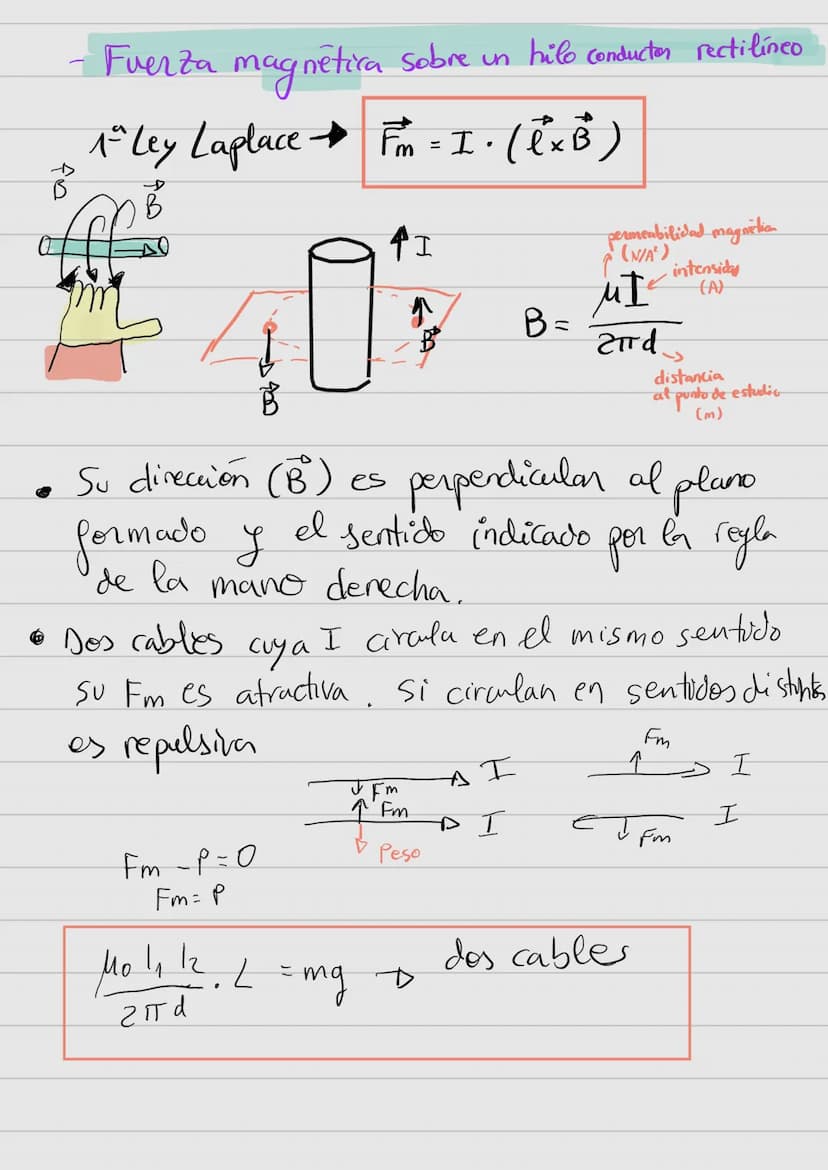 - Fuerza magnética sobre un hilo conductor rectilíneo
1ª Ley Laplace → F⃗m = I · (l⃗ x B⃗)
B⃗
B⃗
I
B⃗
B⃗
permeabilidad magnética
(N/A²)
intensidad
(A)
B = μI / 2πd
distancia
al punto de estudio
(m)
• Su dirección (B⃗) es perpendicular al plano
formado y el sentido indicado por la regla
de la mano derecha.
• Dos cables cuya I circula en el mismo sentido
su Fm es atractiva. Si circulan en sentidos distintos
es repulsiva
Fm
I
I
Fm
Fm
I
I
Fm
Peso
Fm - P = 0
Fm = P
μ₀ I₁ I₂ / 2πd · L = mg → dos cables